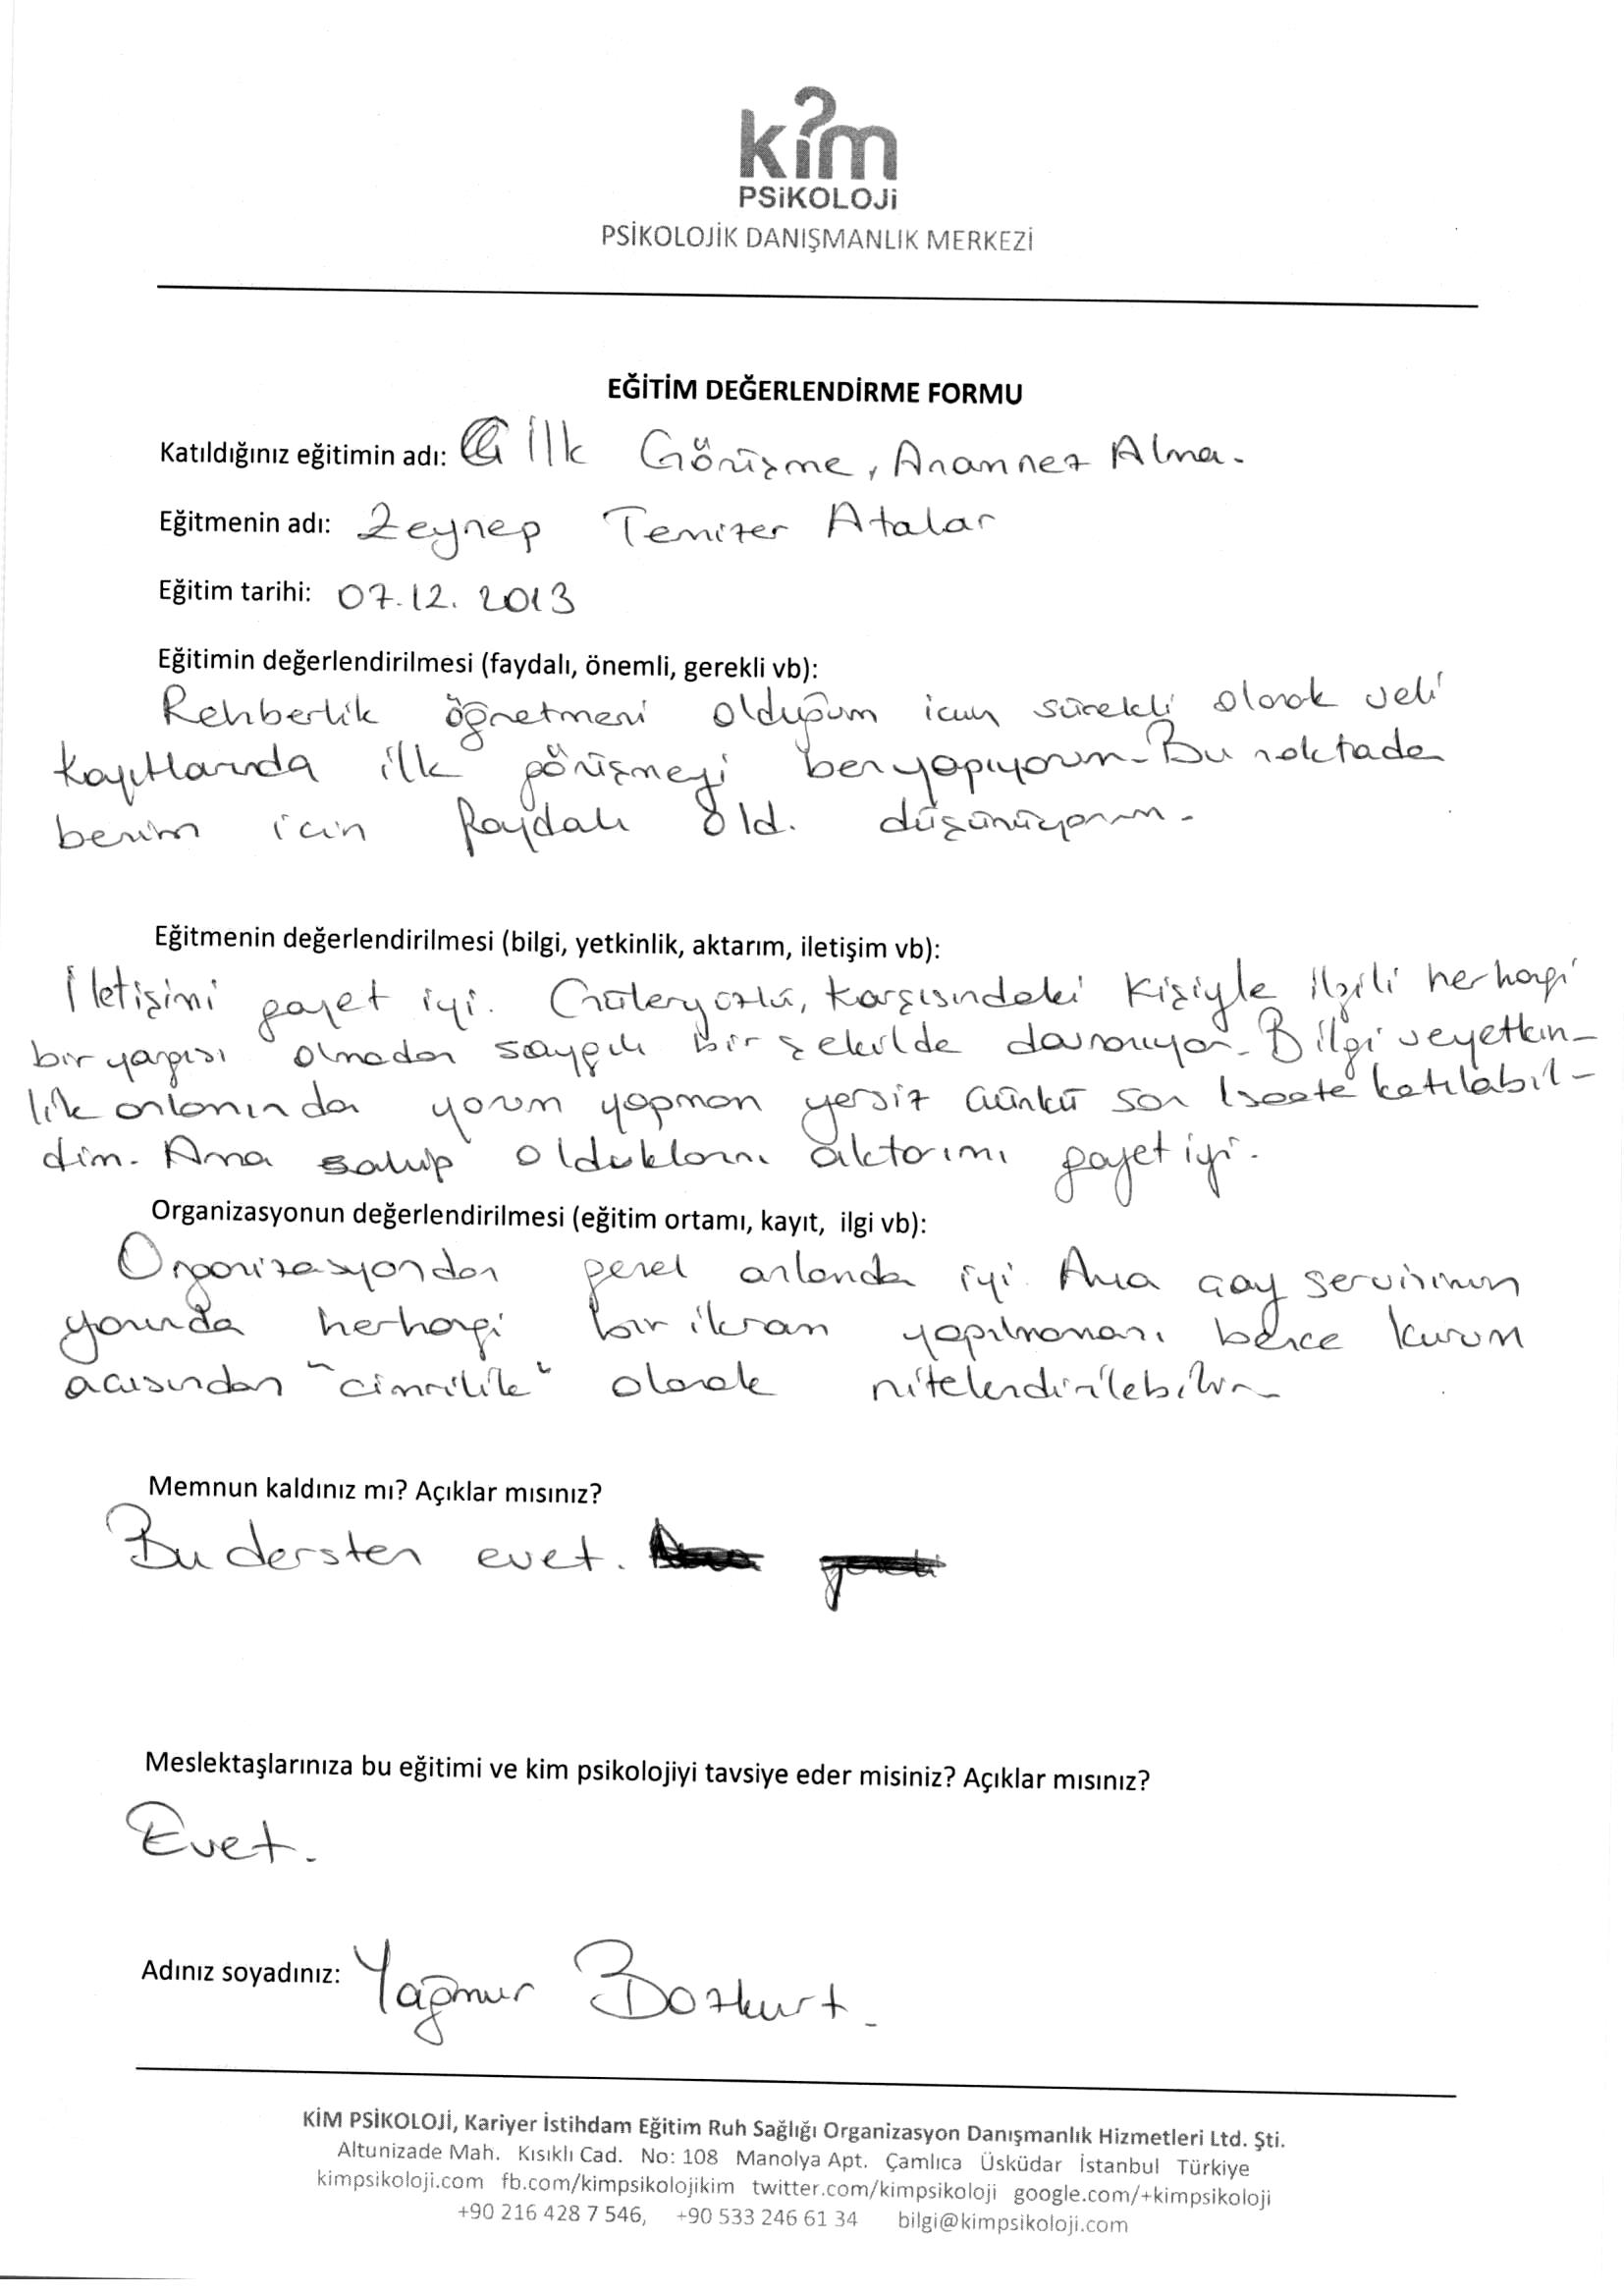 kim
PSiKOLOJi
PSİKOLOJİK DANIŞMANLIK MERKEZİ
EĞİTİM DEĞERLENDİRME FORMU
Katıldığınız eğitimin adı: İlk Görüşme, Anamnez Alma.
Eğitmenin adı: Zeynep Temizer Atalar
Eğitim tarihi: 07.12.2013
Eğitimin değerlendirilmesi (faydalı, önemli, gerekli vb):
Rehberlik öğretmeni olduğum icin sürekli olarak veli
kayıtlarında ilk görüşmeyi ben yapıyorum. Bu noktada
benim icin faydalı old. düşünüyorum.
Eğitmenin değerlendirilmesi (bilgi, yetkinlik, aktarım, iletişim vb):
İletişimi gayet iyi. Güleryüzlü, karşısındaki kişiyle ilgili herhangi
bir yargısı olmadan saygılı bir şekilde davranıyor. Bilgi ve yetkin-
lik anlamında yorum yapmam yersiz çünkü son 1 saate katılabil-
dim. Ama sahip oldukların aktarımı gayet iyi.
Organizasyonun değerlendirilmesi (eğitim ortamı, kayıt, ilgi vb):
Organizasyondan genel anlamda iyi. Ama çay servisinin
yanında herhangi bir ikram yapılmaması bence kurum
acısından "cimrilik" olarak nitelendirilebilir.
Memnun kaldınız mı? Açıklar mısınız?
Bu dersten evet.
Meslektaşlarınıza bu eğitimi ve kim psikolojiyi tavsiye eder misiniz? Açıklar mısınız?
Evet.
Adınız soyadınız: Yağmur Bozkurt.
KİM PSİKOLOJİ, Kariyer İstihdam Eğitim Ruh Sağlığı Organizasyon Danışmanlık Hizmetleri Ltd. Şti.
Altunizade Mah. Kısıklı Cad. No: 108 Manolya Apt. Çamlıca Üsküdar İstanbul Türkiye
kimpsikoloji.com fb.com/kimpsikolojikim twitter.com/kimpsikoloji google.com/+kimpsikoloji
+90 216 428 7 546, +90 533 246 61 34 bilgi@kimpsikoloji.com